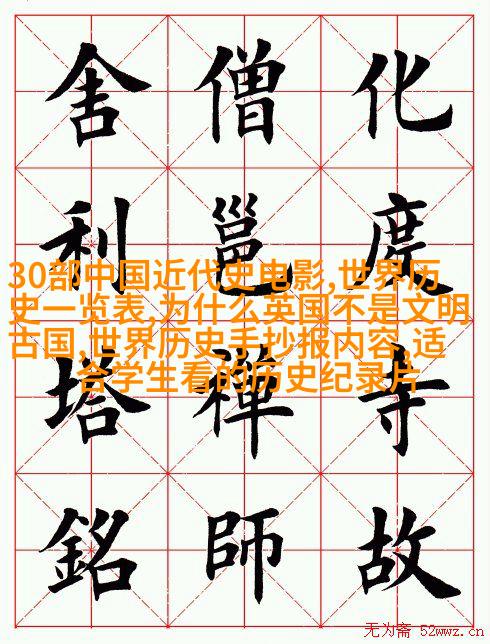 化度寺故
僧邕禪師
舍利塔銘
30部中国近代史电影,世界历
史一览表,为什么英国不是文明
古国,世界历史手抄报内容,适
合学生看的历史纪录片
无为斋 52wwz.cn